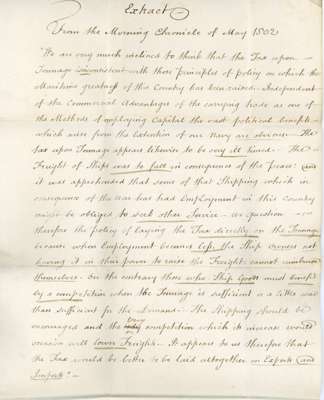 Extract
From the Morning Chronicle of May 1802
"We are very much inclined to think that the Tax upon
Tonnage inconsistent with those Principles of Policy on which the
Maritime greatness of this Country has been raised. Independent
of the Commercial Advantages of the carrying trade as one of
the Methods of employing Capital the vast political benefits
which arise from the Extention of our Navy are obvious — The
tax upon Tonnage appears likewise to be very ill timed — The
Freight of Ships was to fall in consequence of the peace: (and
it was apprehended that some of that Shipping which in
consequence of the war has had Employment in this Country
might be obliged to seek other Service — We question
therefore the policy of laying the Tax directly on the Tonnage
because when Employment becomes less, the Ship owners not
having it in their power to raise the Freight cannot reimburse
themselves. On the contrary those who Ship Goods must benefit
by a competition when the Tonnage is sufficient or a little more
than sufficient for the Demand — The Shipping should be
encouraged and the very competition which its increase would
occasion will lower Freights — It appears to us therefore that
the Tax would be better to be laid altogether on Exports (and
Imports" —